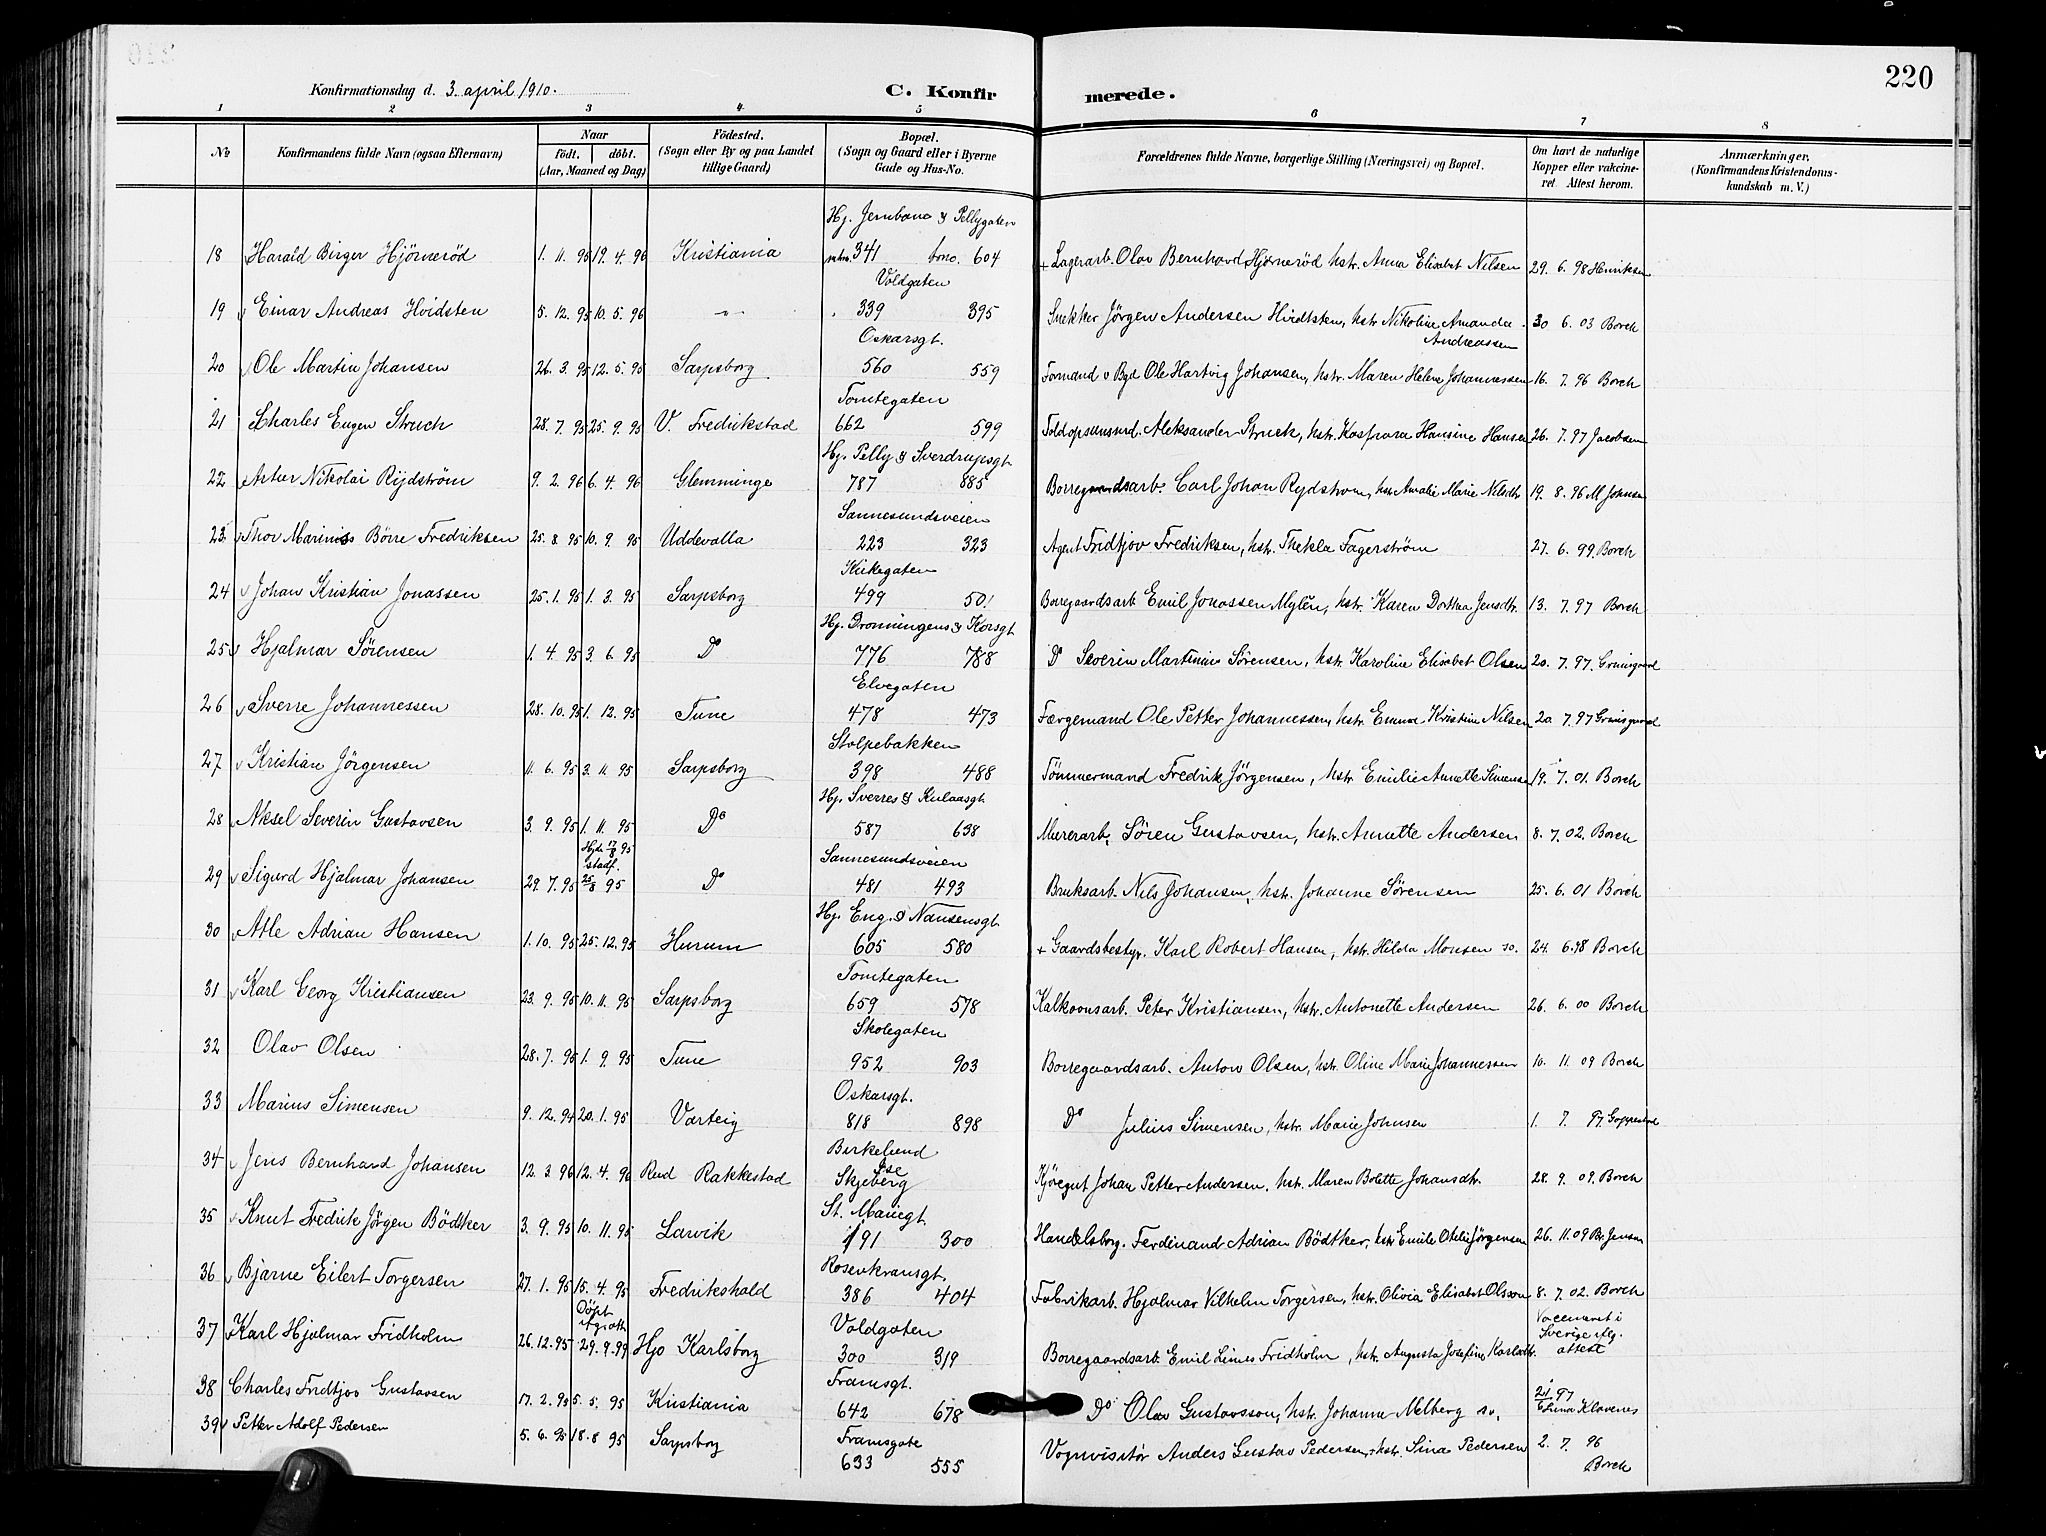 220
Konfirmationsdag d. 3. april 1910.
C. Konfirmerede.
1 2 3 4 5 6 7 8
No Konfirmandens fulde Navn (ogsaa Efternavn) Naar födt. döbt. (Aar, Maaned og Dag) Födested. (Sogn eller By og paa Landet tillige Gaard) Bopæl. (Sogn og Gaard eller i Byerne Gade og Hus-No. Forældrenes fulde Navne, borgerlige Stilling (Næringsvei) og Bopæl. Om havt de naturlige Kopper eller vakcineret Attest herom. Anmærkninger. (Konfirmandens Kristendomskundskab m. V.)
Hj. Jernbane & Pellygaten
18 Harald Birger Hjörnerød 1. 11. 95 19. 4. 96 Kristiania 341 bno. 604 + Lagerarb. Olav Bernhard Hjørnerød hstr. Anna Elisabet Nilsen 29. 6. 98 Henriksen
Voldgaten
19 Einar Andreas Hvidsten 5. 12. 95 10. 5. 96 -"- 339 395 Snekker Jörgen Andersen Hvidtsten, hstr. Nikoline Amanda Andreassen 30 6. 03 Borch
Oskarsgt.
20 Ole Martin Johansen 26. 3. 95 12. 5. 95 Sarpsborg 560 559 Formand v Bgd Ole Hartvig Johansen, hstr. Maren Helene Johannessen 16. 7. 96 Borch
Tomtegaten
21 Charles Eugen Struck 28. 7. 95 25. 9. 95 V. Fredrikstad 662 599 Toldopsunsmd. Aleksander Struck, hstr. Kasfrara Hansine Hansen 26. 7. 97 Jacobsen
Hj. Pelly & Sverdrupsgt.
22 Artur Nikolai Rydström 9. 2. 96 6. 4. 96 Glemminge 787 885 Borregaardsarb. Carl Johan Rydstrom, hstr Amalie Marie Nilsdtr. 19. 8. 96 M Johnsen
Sannesundsveien
23 Thor Marinius Börre Fredriksen 25. 8. 95 10. 9. 95 Uddevalla 223 323 Agent Fridtjov Fredriksen, hstr. Thekla Fagerström 27. 6. 99. Borch
Kirkegaten
24 Johan Kristian Jonassen 25. 1. 95 1. 3. 95 Sarpsborg 499 501 Borregaardsarb Emil Jonassen Mylén, hstr. Karen Dorthea Jensdtr. 13. 7. 97 Borch
Hj. Dronningens & Korsgt.
25 Hjalmar Sörensen 1. 4. 95 3. 6. 95 Do 776 788 Do Severin Martinius Sörensen, hstr. Karoline Elisabet Olsen 20. 7. 97. Grinisgaard
Elvegaten
26 Sverre Johannessen 28. 10. 95 1. 12. 95 Tune 478 473 Færgemand Ole Petter Johannessen, hstr. Emma Kristine Nilsen 20 7. 97 Grinisgaard
Stolpebakken
27 Kristian Jörgensen 11. 6. 95 3. 11. 95 Sarpsborg 398 488 Tömmermand Fredrik Jörgensen, hstr. Emilie Annette Simensen 19. 7. 01. Borch
Hj. Sverres & Kulaasgt.
28 Aksel Severin Gustavsen 3. 9. 95 1. 11. 95 Do 587 638 Murerarb. Sören Gustavsen, hstr. Annette Andersen 8. 7. 02. Borch
Hjd. 17/8 95 stadf. Sannesundsveien
29 Sigurd Hjalmar Johansen 29. 7. 95 25/8 95 Do 481 493 Bruksarb. Nils Johansen, hstr. Johanne Sörensen 25. 6. 01 Borch
Hj. Eng. & Nansensgt.
30 Atle Adrian Hansen 1. 10. 95 25. 12. 95 Hurum 605 580 + Gaardsbestyr. Karl Robert Hansen, hstr. Hilda Monsen so. 24. 6. 98 Borch
Tomtegaten
31 Karl Georg Kristiansen 23. 9. 95 10. 11. 95 Sarpsborg 659 578 Kalkovnsarb. Peter Kristiansen, hstr. Antonette Andersen 26. 6. 00 Borch
Skolegaten
32 Olav Olsen 28. 7. 95 1. 9. 95 Tune 952 903 Borregaardsarb. Anton Olsen, hstr. Oline Marie Johannessen 10. 11. 09 Borch
Oskarsgt.
33 Marius Simensen 9. 12. 94 20. 1. 95 Varteig 818 898 Do Julius Simensen, hstr. Marie Johnsen 1. 7. 97
Birkelund
34 Jens Bernhard Johansen 12. 3. 96 12. 4. 96 Rud Rakkestad Ise Skjeberg Kjöregut Johan Petter Andersen. hstr. Maren Bolette Johansdtr. 28. 9. 09. Borch
St. Mariegt.
35 Knut Fredrik Jörgen Bödtker 3. 9. 95 10. 11. 95 Larvik 191 300 Handelsborg. Ferdinand Adrian Bödtker, hstr Emile Otelie Jörgensen 26. 11. 09 Br. Jensen
Rosenkransgt.
36 Bjarne Eilert Torgersen 27. 1. 95 15. 4. 95 Fredrikshald 386 404 Fabrikarb. Hjalmar Vilhelm Torgersen, hstr. Olivia Elisabet Olsson 8. 7. 02. Borch
Döpt Voldgaten
37 Karl Hjalmar Fridholm 26. 12. 95 29. 9. 99 Hjo Karlsborg 300 319 Borregaardsarb. Emil Linus Fridholm, hstr. Augusta Josefine Karlsdtr. Vaccineret i Sverige iflg. attest
Framsgt.
38 Charles Fridtjov Gustavsen 17. 2. 95 5. 5. 95 Kristiania 642 678 Do Olav Gustavsson, hstr. Johanne Melberg sv. Elina Klavenes
Framsgate
39 Petter Adolf Pedersen 5. 6. 95 18. 8 95 Sarpsborg 633 555 Vognvisitör Anders Gustav Pedersen, hstr. Sina Pedersen 2. 7. 96 Borch